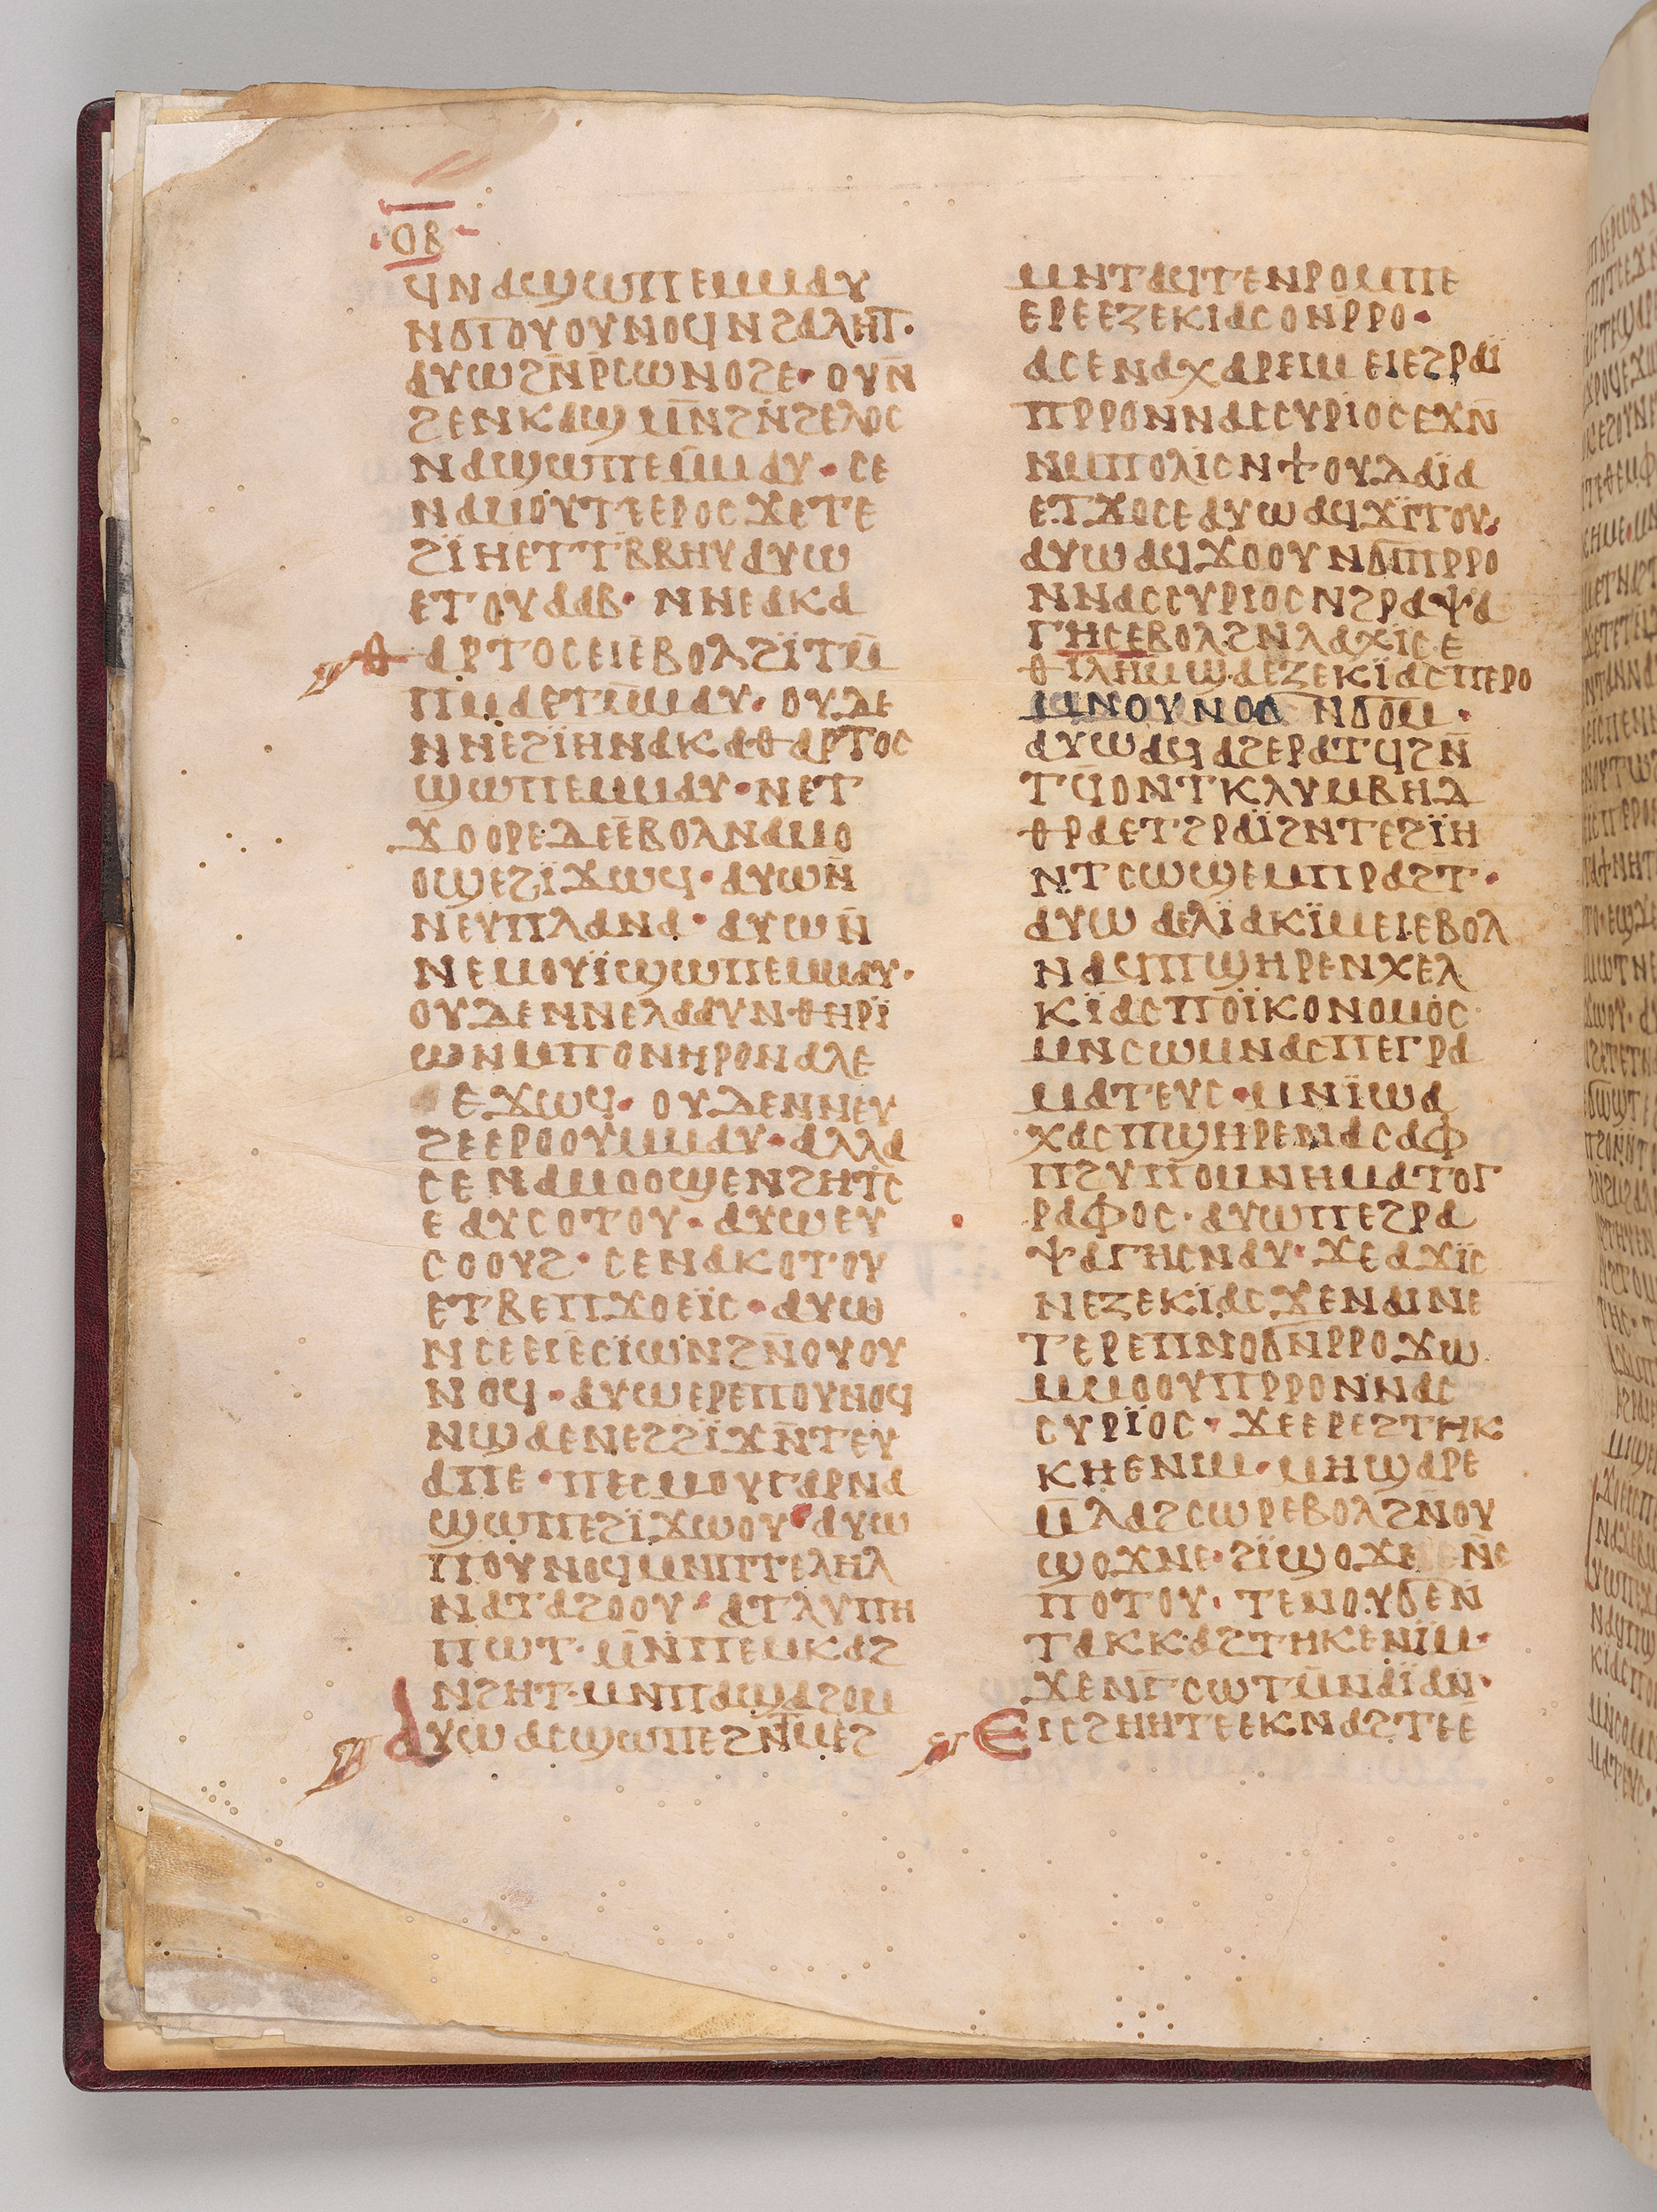 ⲟⲃ
ϥⲛⲁϣⲱⲡⲉⲙⲙⲁⲩ
ⲛϭⲓⲟⲩⲟⲩⲛⲟϥⲛϩⲁⲗⲏⲧ·
ⲁⲩⲱϩⲛ̄ⲣ̄ⲥⲱⲛⲟϩⲉ· ⲟⲩⲛ̄
ϩⲉⲛⲕⲁϣ ⲙ̄ⲛϩⲛ̄ϩⲉⲗⲟⲥ
ⲛⲁϣⲱⲡⲉⲙ̄ⲙⲁⲩ· ⲥⲉ
ⲛⲁⲙⲟⲩⲧⲉⲉⲣⲟⲥ ϫⲉⲧⲉ
ϩⲓ̈ⲏⲉⲧⲧⲃⲃⲏⲩⲁⲩⲱ
ⲉⲧⲟⲩⲁⲁⲃ· ⲛⲛⲉⲁⲕⲁ
ⲑⲁⲣⲧⲟⲥⲉⲓⲉⲃⲟⲗϩⲓ̈ⲧⲙ̄
ⲡⲙⲁⲉⲧⲙ̄ⲙⲁⲩ· ⲟⲩⲇⲉ
ⲛⲛⲉϩⲓ̈ⲏⲛⲁⲕⲁⲑⲁⲣⲧⲟⲥ
ϣⲱⲡⲉⲙⲙⲁⲩ· ⲛⲉⲧ
ϫⲟⲟⲣⲉⲇⲉⲉ̄ⲃⲟⲗⲛⲁⲙⲟ
ⲟϣⲉϩⲓ̈ϫⲱϥ· ⲁⲩⲱⲛ̄
ⲛⲉⲩⲡⲗⲁⲛⲁ· ⲁⲩⲱⲛ̄
ⲛⲉⲙⲟⲩⲓ̈ϣⲱⲡⲉⲙⲙⲁⲩ·
ⲟⲩⲇⲉⲛⲛⲉⲗⲁⲁⲩⲛⲑⲏⲣⲓ̈
ⲱⲛⲙⲡⲟⲛⲏⲣⲟⲛⲁⲗⲉ
ⲉϫⲱϥ· ⲟⲩⲇⲉⲛⲛⲉⲩ
ϩⲉⲉⲣⲟⲟⲩⲙⲙⲁⲩ· ⲁⲗⲗⲁ
ⲥⲉⲛⲁⲙⲟⲟϣⲉⲛϩⲏⲧⲥ
ⲉⲁⲩⲥⲟⲧⲟⲩ· ⲁⲩⲱⲉⲩ
ⲥⲟⲟⲩϩ· ⲥⲉⲛⲁⲕⲟⲧⲟⲩ
ⲉⲧⲃⲉⲡϫⲟⲉⲓ̈ⲥ· ⲁⲩⲱ
ⲛⲥⲉⲉⲓⲉⲥⲓ̈ⲱⲛϩⲛ̄ⲟⲩⲟⲩ
ⲛⲟϥ· ⲁⲩⲱⲉⲣⲉⲡⲟⲩⲛⲟϥ
ⲛϣⲁⲉⲛⲉϩϩⲓ̈ϫⲛ̄ⲧⲉⲩ
ⲁⲡⲉ· ⲡⲉⲥⲙⲟⲩⲅⲁⲣⲛⲁ
ϣⲱⲡⲉϩⲓ̈ϫⲱⲟⲩ· ⲁⲩⲱ
ⲡⲟⲩⲛⲟϥⲙⲛⲡⲧⲉⲗⲏⲗ
ⲛⲁⲧⲁϩⲟⲟⲩ· ⲁⲧⲗⲩⲡⲏ
ⲡⲱⲧ· ⲙⲛ̄ⲡⲉⲙⲕⲁϩ
ⲛϩⲏⲧ· ⲙⲛⲡⲁϣⲁϩⲟⲙ
ⲁⲩⲱⲁⲥϣⲱⲡⲉϩⲛ̄ⲧⲙⲉϩ
ⲙⲛⲧⲁϥⲧⲉⲛⲣⲟⲙⲡⲉ
ⲉⲣⲉⲉⲍⲉⲕⲓⲁⲥⲟⲛⲣⲣⲟ·
ⲁⲥⲉⲛⲁⲭⲁⲣⲉⲓⲙ ⲉⲓⲉϩⲣⲁⲓ̈
ⲡⲣⲣⲟⲛⲛⲁⲥⲥⲩⲣⲓⲟⲥⲉϫⲛ̄
ⲛⲙⲡⲟⲗⲓⲥⲛϯⲟⲩⲇⲁⲓ̈ⲁ
ⲉⲧϫⲟⲥⲉⲁⲩⲱⲁϥϫⲓ̈ⲧⲟⲩ·
ⲁⲩⲱⲁϥϫⲟⲟⲩⲛϭⲓⲡⲣⲣⲟ
ⲛⲛⲁⲥⲥⲩⲣⲓⲟⲥⲛϩⲣⲁⲯⲁ
ⲅⲏⲥⲉⲃⲟⲗϩⲛⲗⲁⲭⲓ̈ⲥⲉ
ⲑⲓⲗⲏⲙϣⲁⲉⲍⲉⲕⲓ̈ⲁⲥⲡⲉⲣⲟ
ⲙⲛⲟⲩⲛⲟϭ ⲛϭⲟⲙ·
ⲁⲩⲱⲁϥⲁϩⲉⲣⲁⲧϥϩⲛ̄
ⲧϥⲟⲛⲧⲕⲗⲩⲙⲃⲏⲇ
ⲑⲣⲁⲉⲧϩⲣⲁⲓ̈ϩⲛⲧⲉϩⲓ̈ⲏ
ⲛⲧⲥⲱϣⲉⲙⲡⲣⲁϩⲧ·
ⲁⲩⲱ ⲁⲉⲗⲓ̈ⲁⲕⲓ̈ⲙⲉⲓⲉⲃⲟⲗ
ⲛⲁϥⲡϣⲏⲣⲉⲛⲭⲉⲗ
ⲕⲓ̈ⲁⲥⲡⲟⲓ̈ⲕⲟⲛⲟⲙⲟⲥ
ⲙⲛⲥⲱⲙⲛⲁⲥⲡⲉⲅⲣⲁ
ⲙⲁⲧⲉⲩⲥ· ⲙⲛⲓ̈ⲱⲁ
ⲭⲁⲥⲡϣⲏⲣⲉⲛⲁⲥⲁⲫ
ⲡϩⲩⲡⲟⲙⲛⲏⲙⲁⲧⲟⲅ
ⲣⲁⲫⲟⲥ· ⲁⲩⲱⲡⲉϩⲣⲁ
ⲯⲁⲅⲏⲥⲛⲁⲩ· ϫⲉⲁϫⲓ̈ⲥ
ⲛⲉⲍⲉⲕⲓ̈ⲁⲥϫⲉⲛⲁⲓⲛⲉ
ⲧⲉⲣⲉⲡⲛⲟϭⲛⲣⲣⲟϫⲱ
ⲙⲙⲟⲟⲩⲡⲣⲣⲟⲛⲛⲁⲥ
ⲥⲩⲣⲓ̈ⲟⲥ· ϫⲉⲉⲣⲉϩⲧⲏⲕ
ⲕⲏⲉⲛⲓⲙ· ⲙⲏϣⲁⲣⲉ
ⲙ̄ⲗⲁϩⲥⲱⲣⲉⲃⲟⲗϩⲛ̄ⲟⲩ
ϣⲟϫⲛⲉ· ϩⲓ̈ϣⲟϫⲉ
ⲡⲟⲧⲟⲩ· ⲧⲉⲛⲟⲩϭⲉⲛ
ⲧⲁⲕⲕⲁϩⲧⲏⲕⲉⲛⲓ̈ⲙ·
ϫⲉⲛⲅ̄ⲥⲱⲧⲙ̄ⲛⲁⲓ̈ⲁⲛ·
ⲉⲓⲥϩⲏⲏⲧⲉⲉⲕⲛⲁϩⲧⲉⲉ